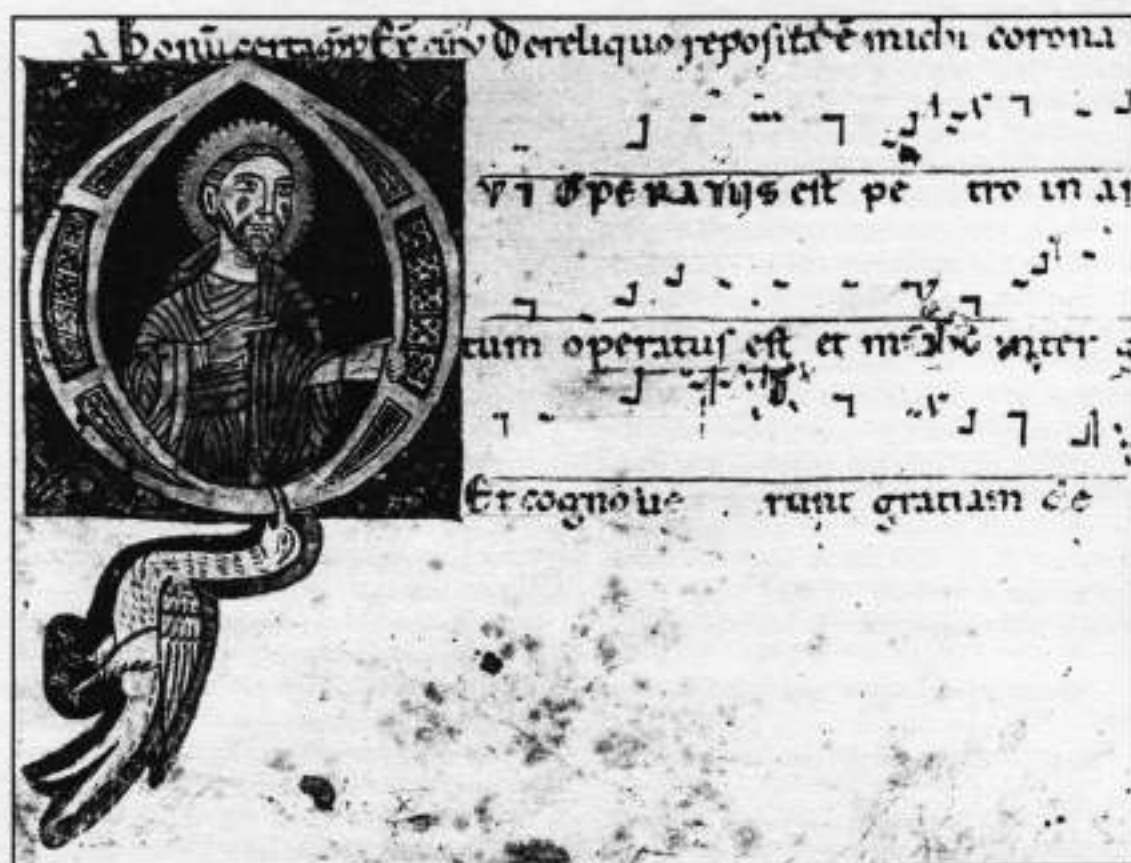 Bonū certamē Dereliquo reposita ē michi corona
QVI OPERATUS est pe tro in ap
tum operatus est et m inter g
Et cognoue runt gratiam de